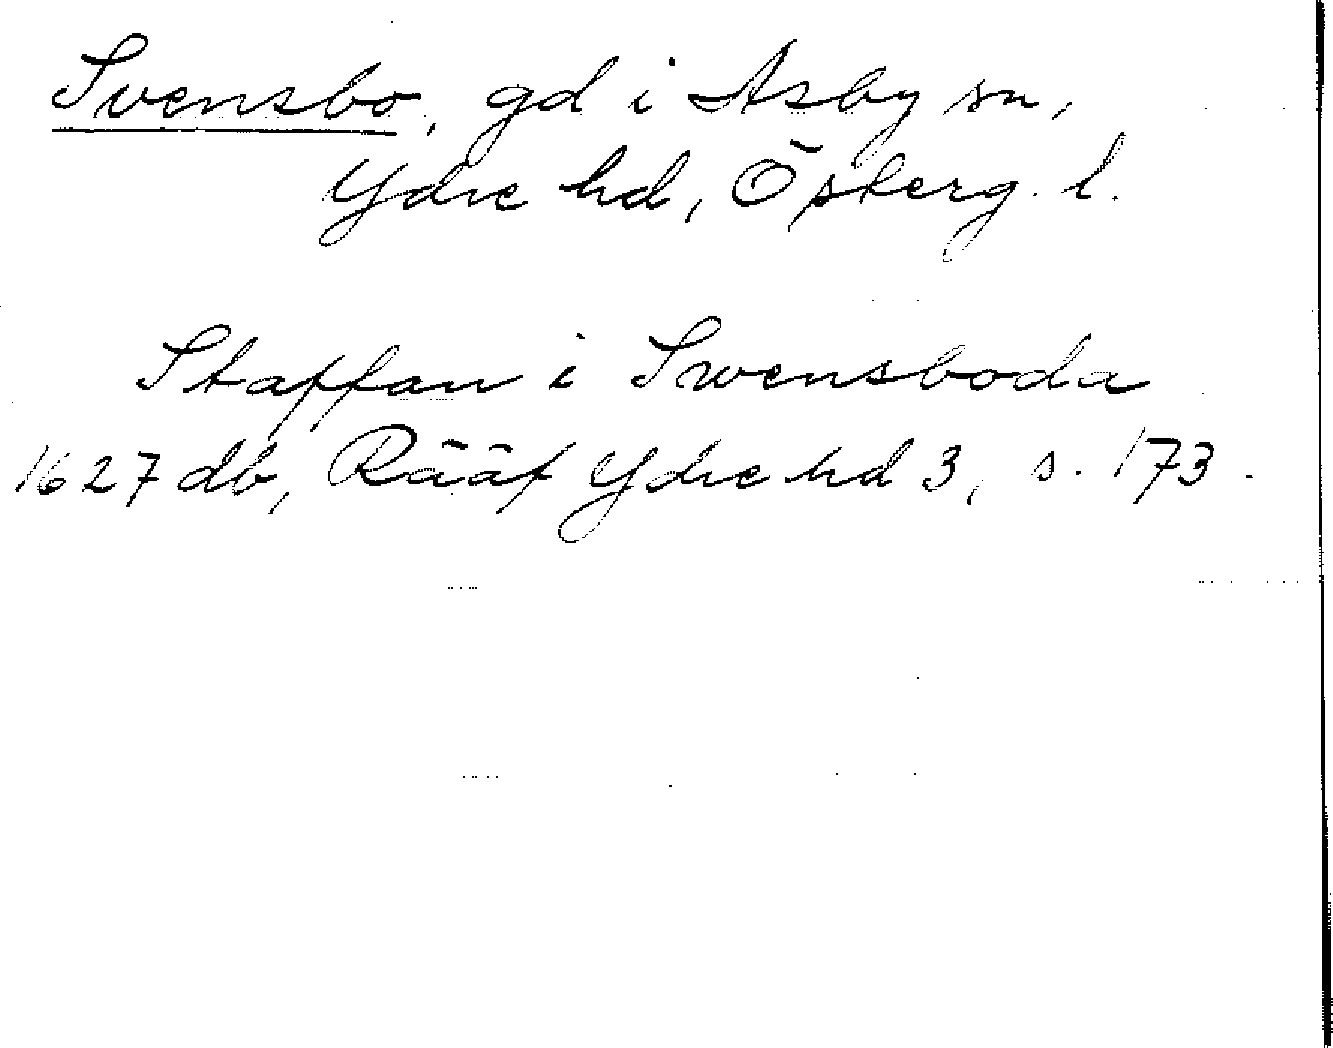 Svensbo, gd i Asby sn,
Ydre hd, Österg. l.
Staffan i Swensboda
1627 db, Rääf Ydre hd 3, s. 173.